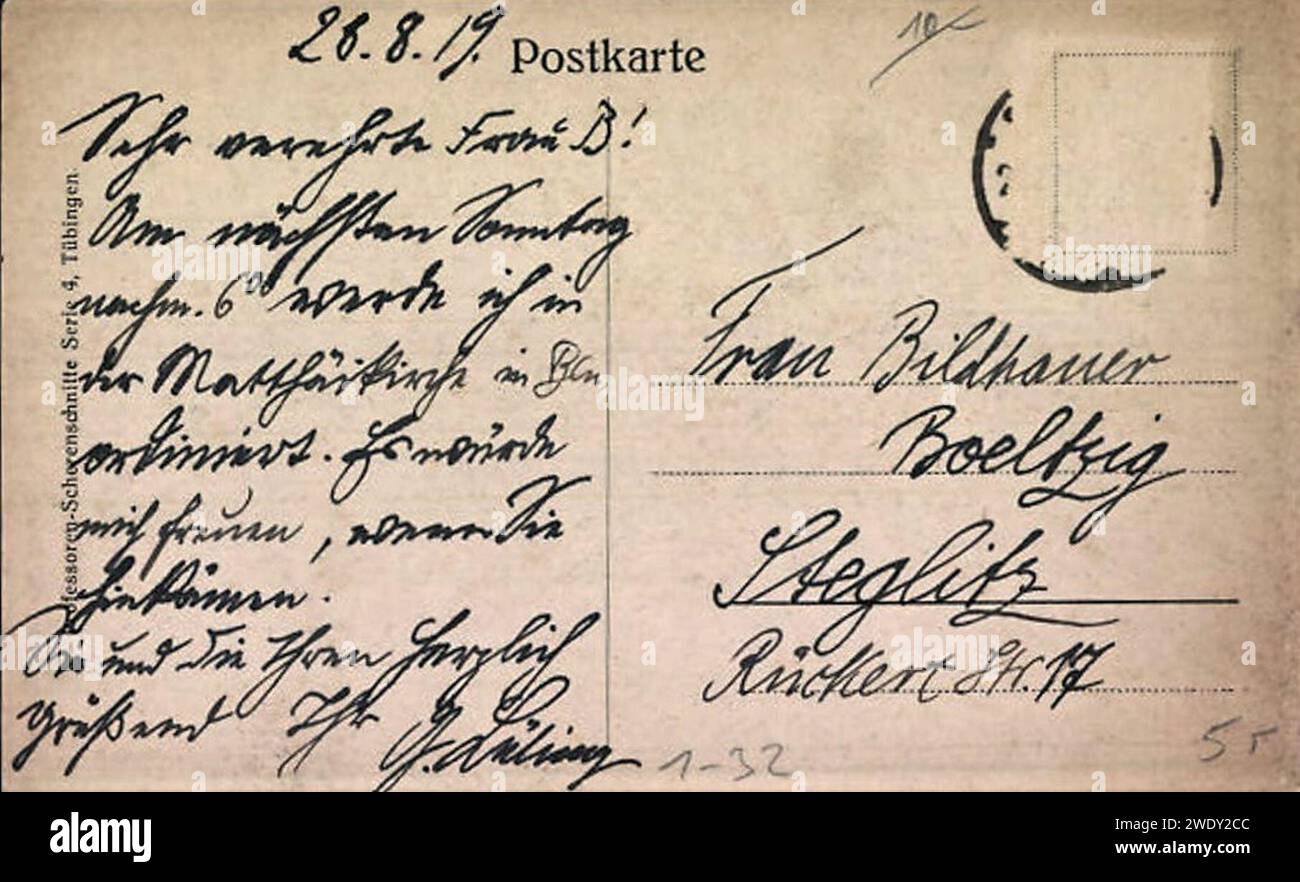 28.8.19.
Postkarte
10
Sehr verehrte Frau B!
Am nächsten Sonntag
nachm. 6⁰⁰ werde ich in
der Matthäikirche in Bln
ordiniert. Es würde
mich freuen, wenn Sie
hinkämen.
Sie und die Ihren herzlich
grüßend Ihr G.
Professoren-Scherenschnitte Serie 4, Tübingen.
Frau Bildhauer
Boeltzig
Steglitz
Rückert Str. 17
1-32
alamy
Image ID: 2WDY2CC
www.alamy.com